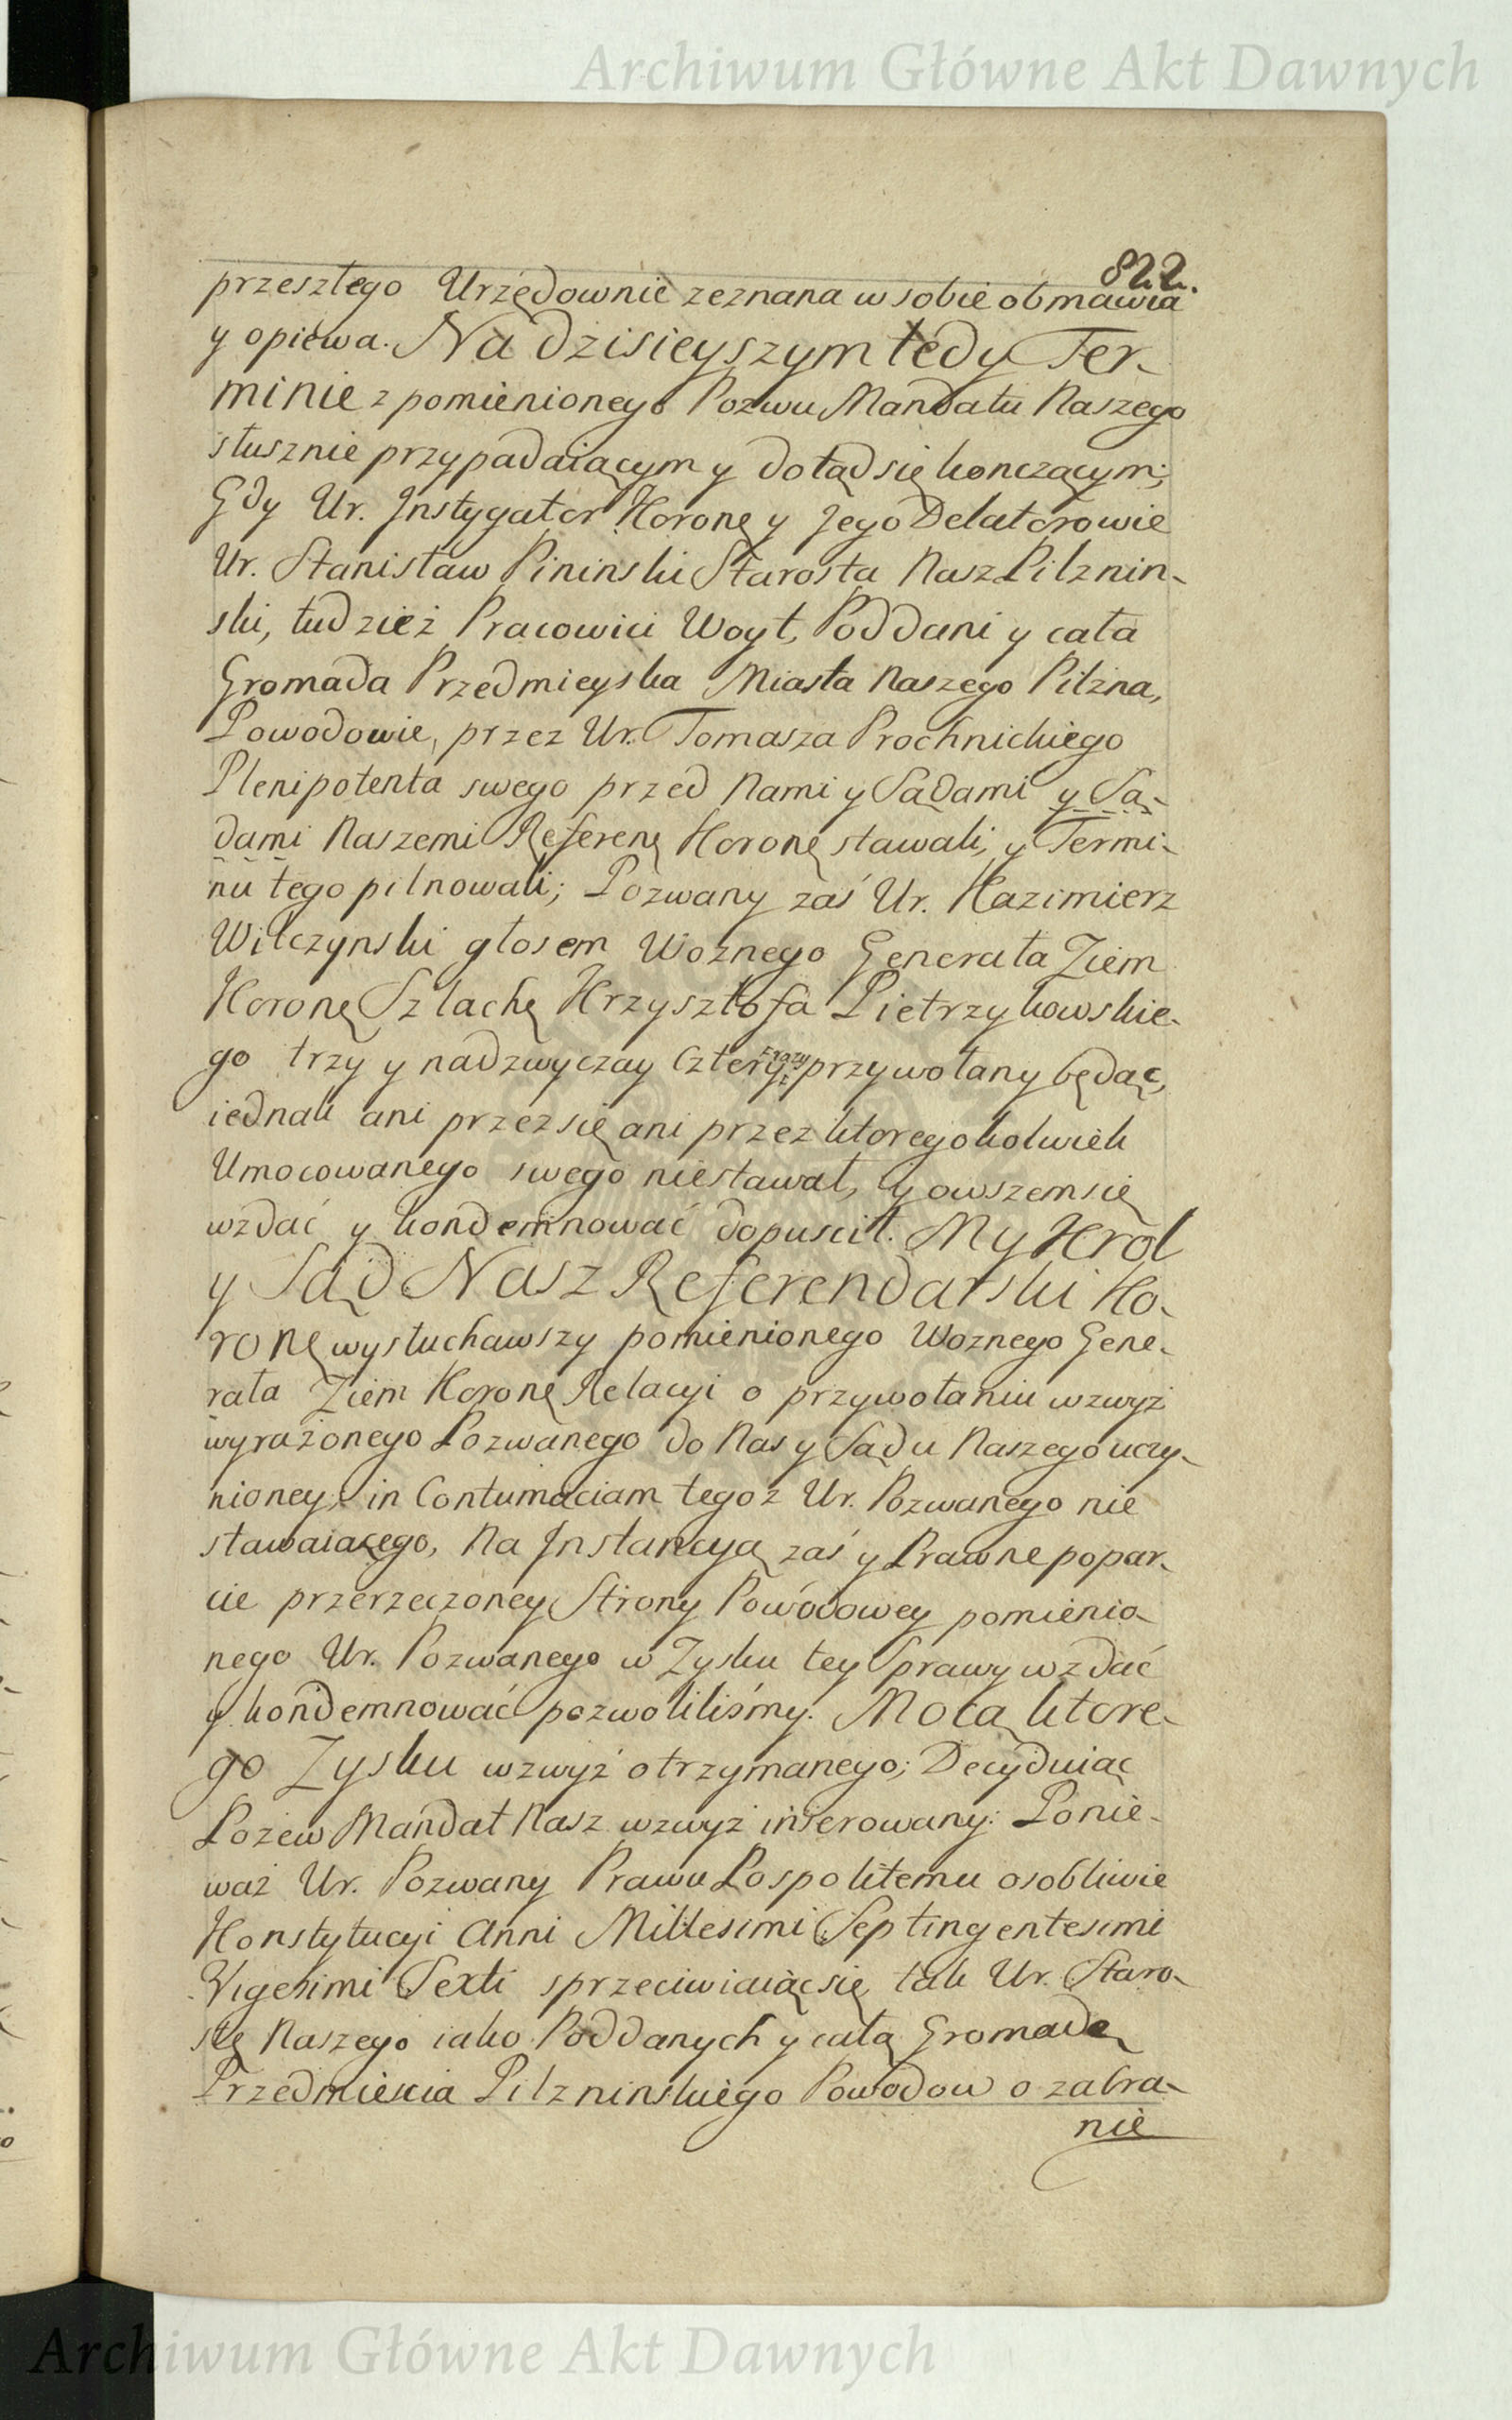 Archiwum Główne Akt Dawnych
822.
przeszłego Urzędownie zeznana w sobie obmawia
y opiewa. Na dzisieyszym tedy Ter-
minie z pomienionego Pozwu Mandatu Naszego
słusznie przypadaiącym y dotąd się konczącym;
Gdy Ur. Instygator Koronę y Jego Delatorowie
Ur. Stanisław Pininski Starosta Nasz Pilznin-
ski, tudzież Pracowici Woyt, Poddani y cała
Gromada Przedmieyska Miasta Naszego Pilzna,
Powodowie, przez Ur. Tomasza Prochnickiego
Plenipotenta swego przed Nami y Sądami y Są-
dami Naszemi Referenę Koronę stawali, y Termi-
nu tego pilnowali; Pozwany zaś Ur. Kazimierz
Wilczynski głosem Woznego Generała Ziem
Koronę Szlachę Krzysztofa Pietrzykowskie-
go trzy y nadzwyczay Cztery razy przywołany będąc,
iednak ani przez się ani przez ktoregokolwiek
Umocowanego swego niestawał, y owszem się
wzdać y kondemnować dopuscił. My Krol
y Sąd Nasz Referendarski Ko-
ronę wysłuchawszy pomienionego Woznego Gene-
rała Ziem Koronę Relacyi o przywołaniu wzwyż
wyrażonego Pozwanego do Nas y Sądu Naszego uczy-
nioney, in Contumaciam tegoż Ur. Pozwanego nie
stawaiącego, Na Instancyą zaś y Prawne popar-
cie przerzeczoney Strony Powodowey pomienio-
nego Ur. Pozwanego w Zysku tey Sprawy wzdać
y kondemnować pozwoliliśmy. Mocą ktore-
go Zysku wzwyż otrzymanego; Decyduiąc
Pozew Mandat Nasz wzwyż inserowany: Ponie-
waż Ur. Pozwany Prawu Pospolitemu osobliwie
Konstytucyi Anni Millesimi Septingentesimi
Vigesimi Sexti sprzeciwiaiąc się, tak Ur. Staro-
stę Naszego iako Poddanych y całą Gromadę
Przedmiescia Pilzninskiego Powodow o zabra-
nie
Archiwum Główne Akt Dawnych